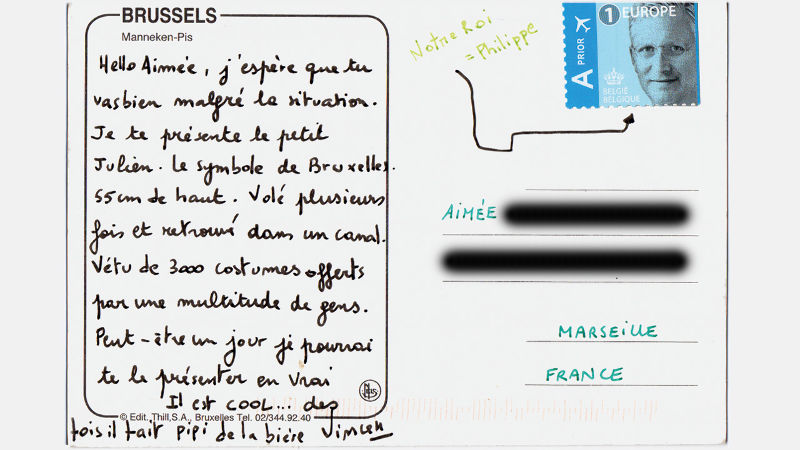 BRUSSELS
Manneken-Pis
Hello Aimée, j'espère que tu
vas bien malgré la situation.
Je te présente le petit
Julien. Le symbole de Bruxelles.
55cm de haut. Volé plusieurs
fois et retrouvé dans un canal.
Vétu de 3000 costumes offerts
par une multitude de gens.
Peut-être un jour je pourrai
te le présenter en vrai
Il est COOL... des
© Edit. Thill,S.A., Bruxelles Tel. 02/344.92.40
fois il fait pipi de la bière
Notre Roi
= Philippe
1 EUROPE
A PRIOR
BELGIË
BELGIQUE
AIMÉE
MARSEILLE
FRANCE